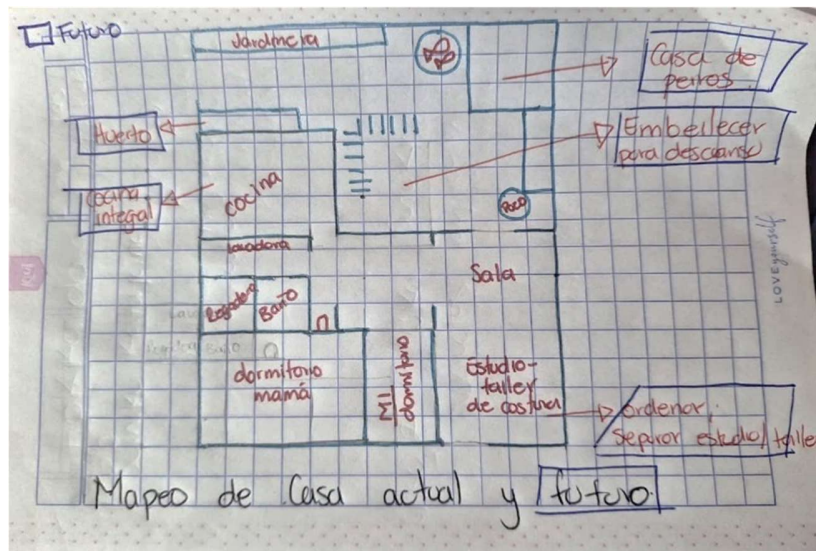 Futuro
Jardinería
Casa de
perros.
Huerto
Embellecer
para descanso
Cocina
integral
cocina
Pozo
lavadora
Sala
Regadera
Baño
dormitorio
mamá
MI
dormitorio
Estudio-
taller
de costura
ordenar,
Separar estudio/taller
LOVE yourself
Mapeo de Casa actual y futuro.